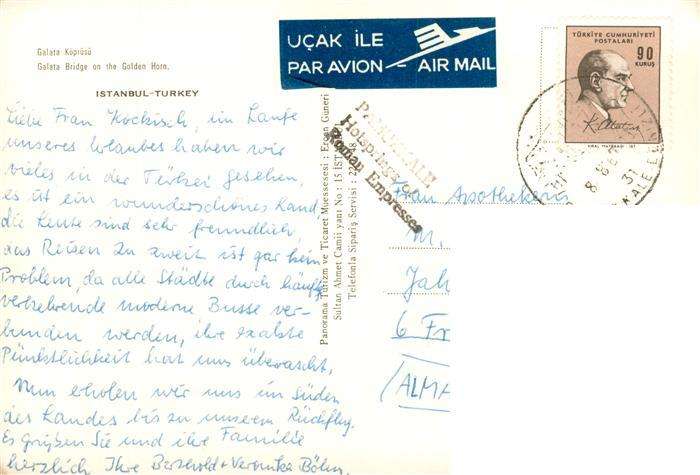 Galata Köprüsü
Galata Bridge on the Golden Horn.
ISTANBUL-TURKEY
UÇAK İLE
PAR AVION - AIR MAIL
TÜRKİYE CUMHURİYETİ
POSTALARI
90
KURUŞ
K. Atatürk
PAMUKKALE
Holspring's of
Roman Empresses
Liebe Frau Kockisch, im Laufe
unseres Urlaubes haben wir
vieles in der Türkei gesehen,
es ist ein wunderschönes Land,
die Leute sind sehr freundlich,
das Reisen zu zweit ist gar kein
Problem, da alle Städte durch häufig
verkehrende moderne Busse ver-
bunden werden, ihre exakte
Pünktlichkeit hat uns überrascht.
Nun erholen wir uns im Süden
des Landes bis zu unserem Rückflug.
Es grüßen Sie und ihre Familie
herzlich Ihre Berthold + Veronika Böhm.
Panorama Turizm ve Ticaret Muessesesi : Ercan Güneri
Sultan Ahmet Camii yanı No : 15 İST
Telefonla Sipariş Servisi : 22
Frau Apothekerin
M.
Jah
6 Fr
(ALMA